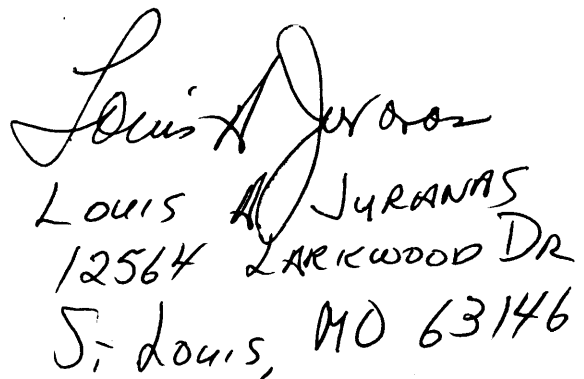 Louis A Juranas
Louis A Juranas
12564 Larkwood Dr
St Louis, MO 63146